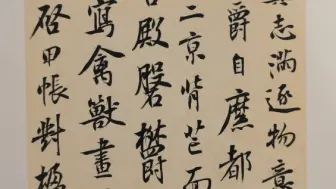 真志滿逐物意
爵自縻都
二京背芒面
宮殿磐欝
寫禽獸畫
啓甲帳對楹